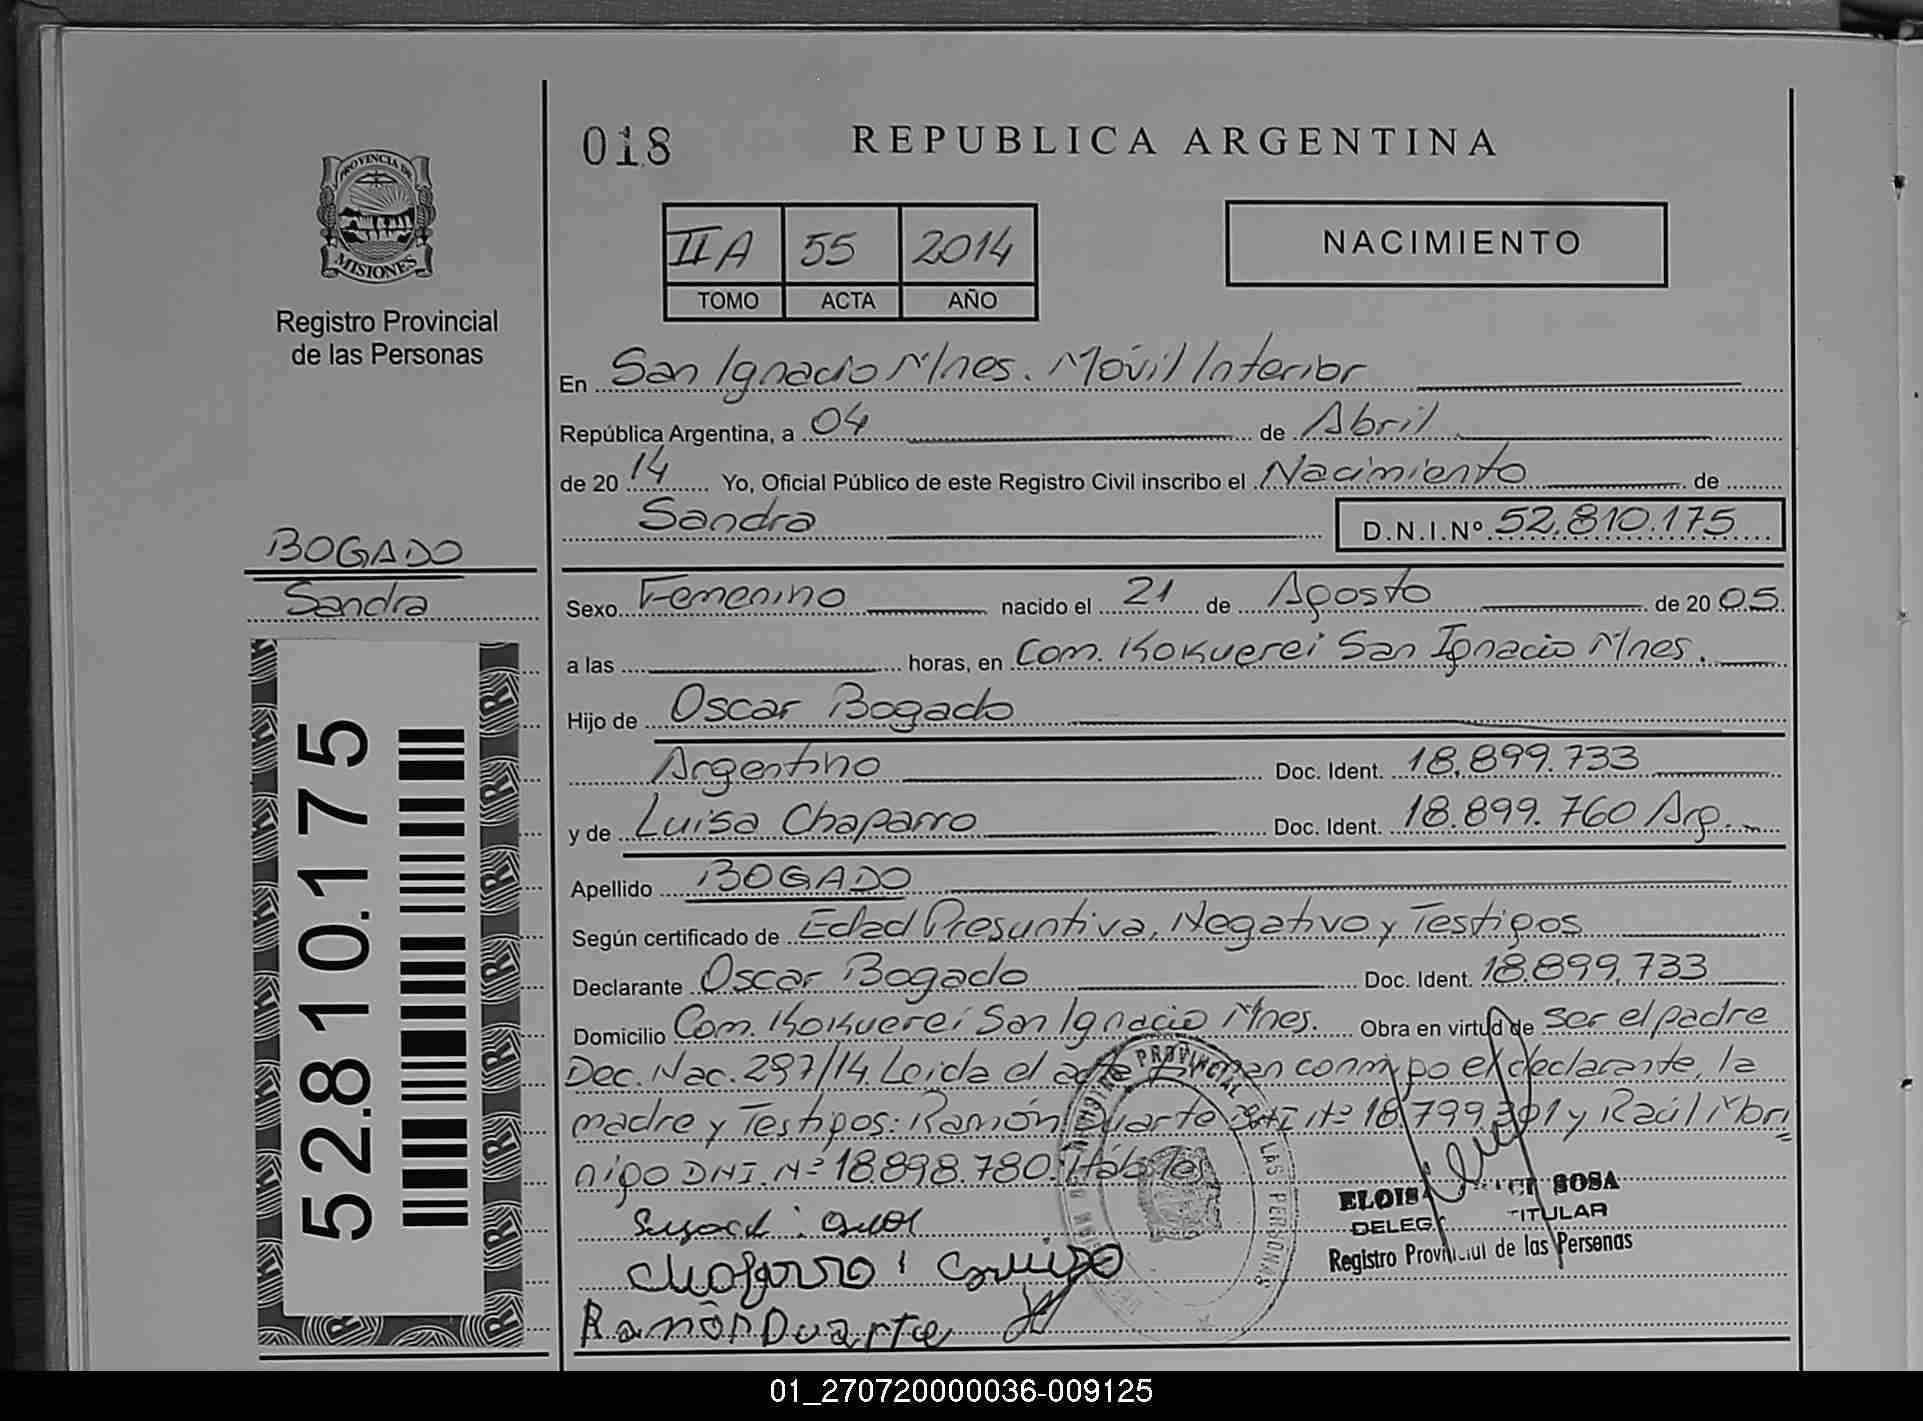 018
REPUBLICA ARGENTINA
PROVINCIA DE
MISIONES
Registro Provincial
de las Personas
IIA 55 2014
TOMO ACTA AÑO
NACIMIENTO
En San Ignacio Mnes. Móvil Interior
República Argentina, a 04 de Abril
de 2014 Yo, Oficial Público de este Registro Civil inscribo el Nacimiento de
Sandra D.N.I.Nº 52.810.175
BOGADO
Sandra
52.810.175
Sexo Femenino nacido el 21 de Agosto de 2005
a las horas, en Com. Kokuerei San Ignacio Mnes.
Hijo de Oscar Bogado
Argentino Doc. Ident. 18.899.733
y de Luisa Chaparro Doc. Ident. 18.899.760 Arg.
Apellido BOGADO
Según certificado de Edad Presuntiva, Negativo y Testigos
Declarante Oscar Bogado Doc. Ident. 18.899.733
Domicilio Com. Kokuerei San Ignacio Mnes. Obra en virtud de ser el padre
Dec. Nac. 297/14. Leida el acta conmigo el declarante, la
madre y Testigos: Ramón Duarte DNI Nº 18.799.301 y Raúl Mori
nigo DNI. Nº 18.898.780. Hábiles
PROVINCIAL LAS PERSONAS
SOSA
TITULAR
Registro Provincial de las Personas
Ramón Duarte
01_270720000036-009125